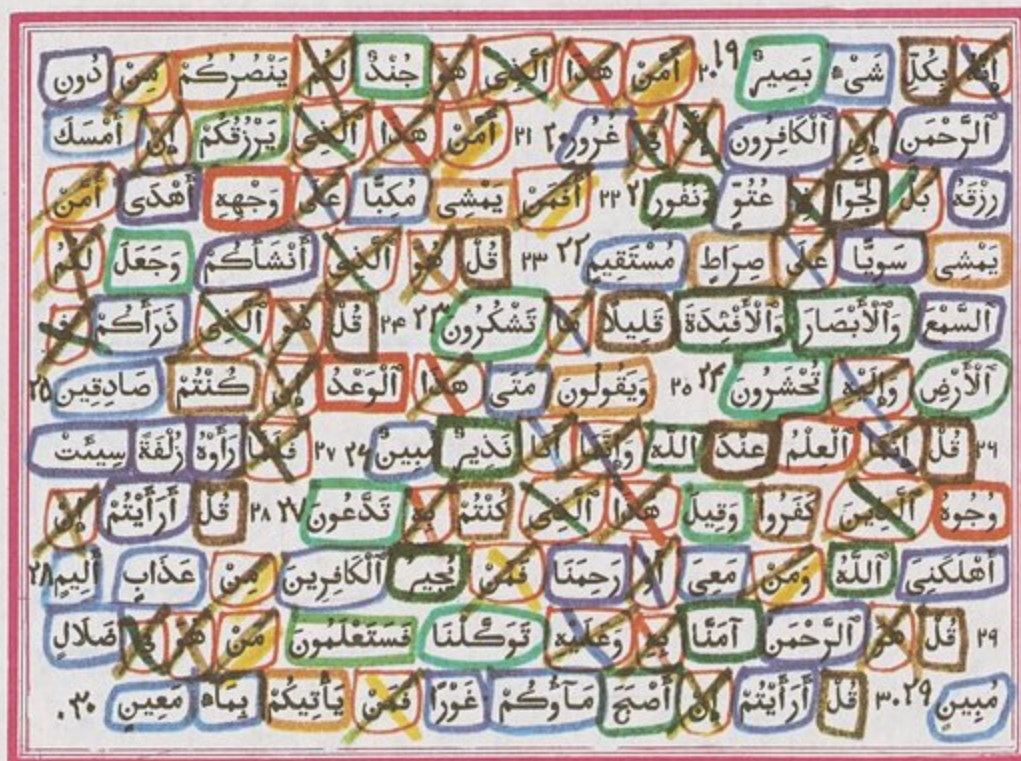 إِنَّهُ بِكُلِّ شَىْءٍ بَصِيرٌ ١٩ ٢٠ أَمَّنْ هٰذَا ٱلَّذِى هُوَ جُنْدٌ لَكُمْ يَنْصُرُكُمْ مِنْ دُونِ
ٱلرَّحْمَنِ إِنِ ٱلْكَافِرُونَ إِلَّا فِى غُرُورٍ ٢٠ ٢١ أَمَّنْ هٰذَا ٱلَّذِى يَرْزُقُكُمْ إِنْ أَمْسَكَ
رِزْقَهُ بَلْ لَجُّوا فِى عُتُوٍّ وَنُفُورٍ ٢١ ٢٢ أَفَمَنْ يَمْشِى مُكِبًّا عَلَى وَجْهِهِ أَهْدَى أَمَّنْ
يَمْشِى سَوِيًّا عَلَى صِرَاطٍ مُسْتَقِيمٍ ٢٢ ٢٣ قُلْ هُوَ ٱلَّذِى أَنْشَأَكُمْ وَجَعَلَ لَكُمُ
ٱلسَّمْعَ وَٱلْأَبْصَارَ وَٱلْأَفْئِدَةَ قَلِيلًا مَا تَشْكُرُونَ ٢٣ ٢۴ قُلْ هُوَ ٱلَّذِى ذَرَأَكُمْ فِى
ٱلْأَرْضِ وَإِلَيْهِ تُحْشَرُونَ ٢۴ ٢٥ وَيَقُولُونَ مَتَى هٰذَا ٱلْوَعْدُ إِنْ كُنْتُمْ صَادِقِينَ ٢٥
٢۶ قُلْ إِنَّمَا ٱلْعِلْمُ عِنْدَ ٱللَّهِ وَإِنَّمَا أَنَا نَذِيرٌ مُبِينٌ ٢۶ ٢٧ فَلَمَّا رَأَوْهُ زُلْفَةً سِيئَتْ
وُجُوهُ ٱلَّذِينَ كَفَرُوا وَقِيلَ هٰذَا ٱلَّذِى كُنْتُمْ بِهِ تَدَّعُونَ ٢٧ ٢٨ قُلْ أَرَأَيْتُمْ إِنْ
أَهْلَكَنِىَ ٱللَّهُ وَمَنْ مَعِىَ أَوْ رَحِمَنَا فَمَنْ يُجِيرُ ٱلْكَافِرِينَ مِنْ عَذَابٍ أَلِيمٍ ٢٨
٢٩ قُلْ هُوَ ٱلرَّحْمَنُ آمَنَّا بِهِ وَعَلَيْهِ تَوَكَّلْنَا فَسَتَعْلَمُونَ مَنْ هُوَ فِى ضَلَالٍ
مُبِينٍ ٢٩ ٣٠ قُلْ أَرَأَيْتُمْ إِنْ أَصْبَحَ مَآؤُكُمْ غَوْرًا فَمَنْ يَأْتِيكُمْ بِمَاءٍ مَعِينٍ ٣٠